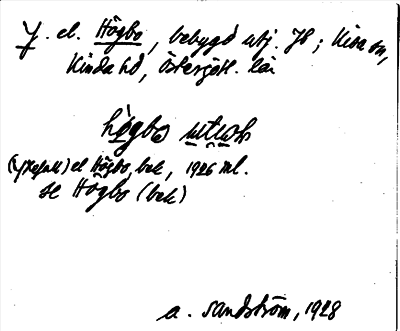 el. Högbo, bebygd utj. Jb; Kisa sn,
Kinda hd, Östergötl. län
högbo
el Högbo, bek, 1926 ml.
se Högbo (bek)
a. Sandström, 1928